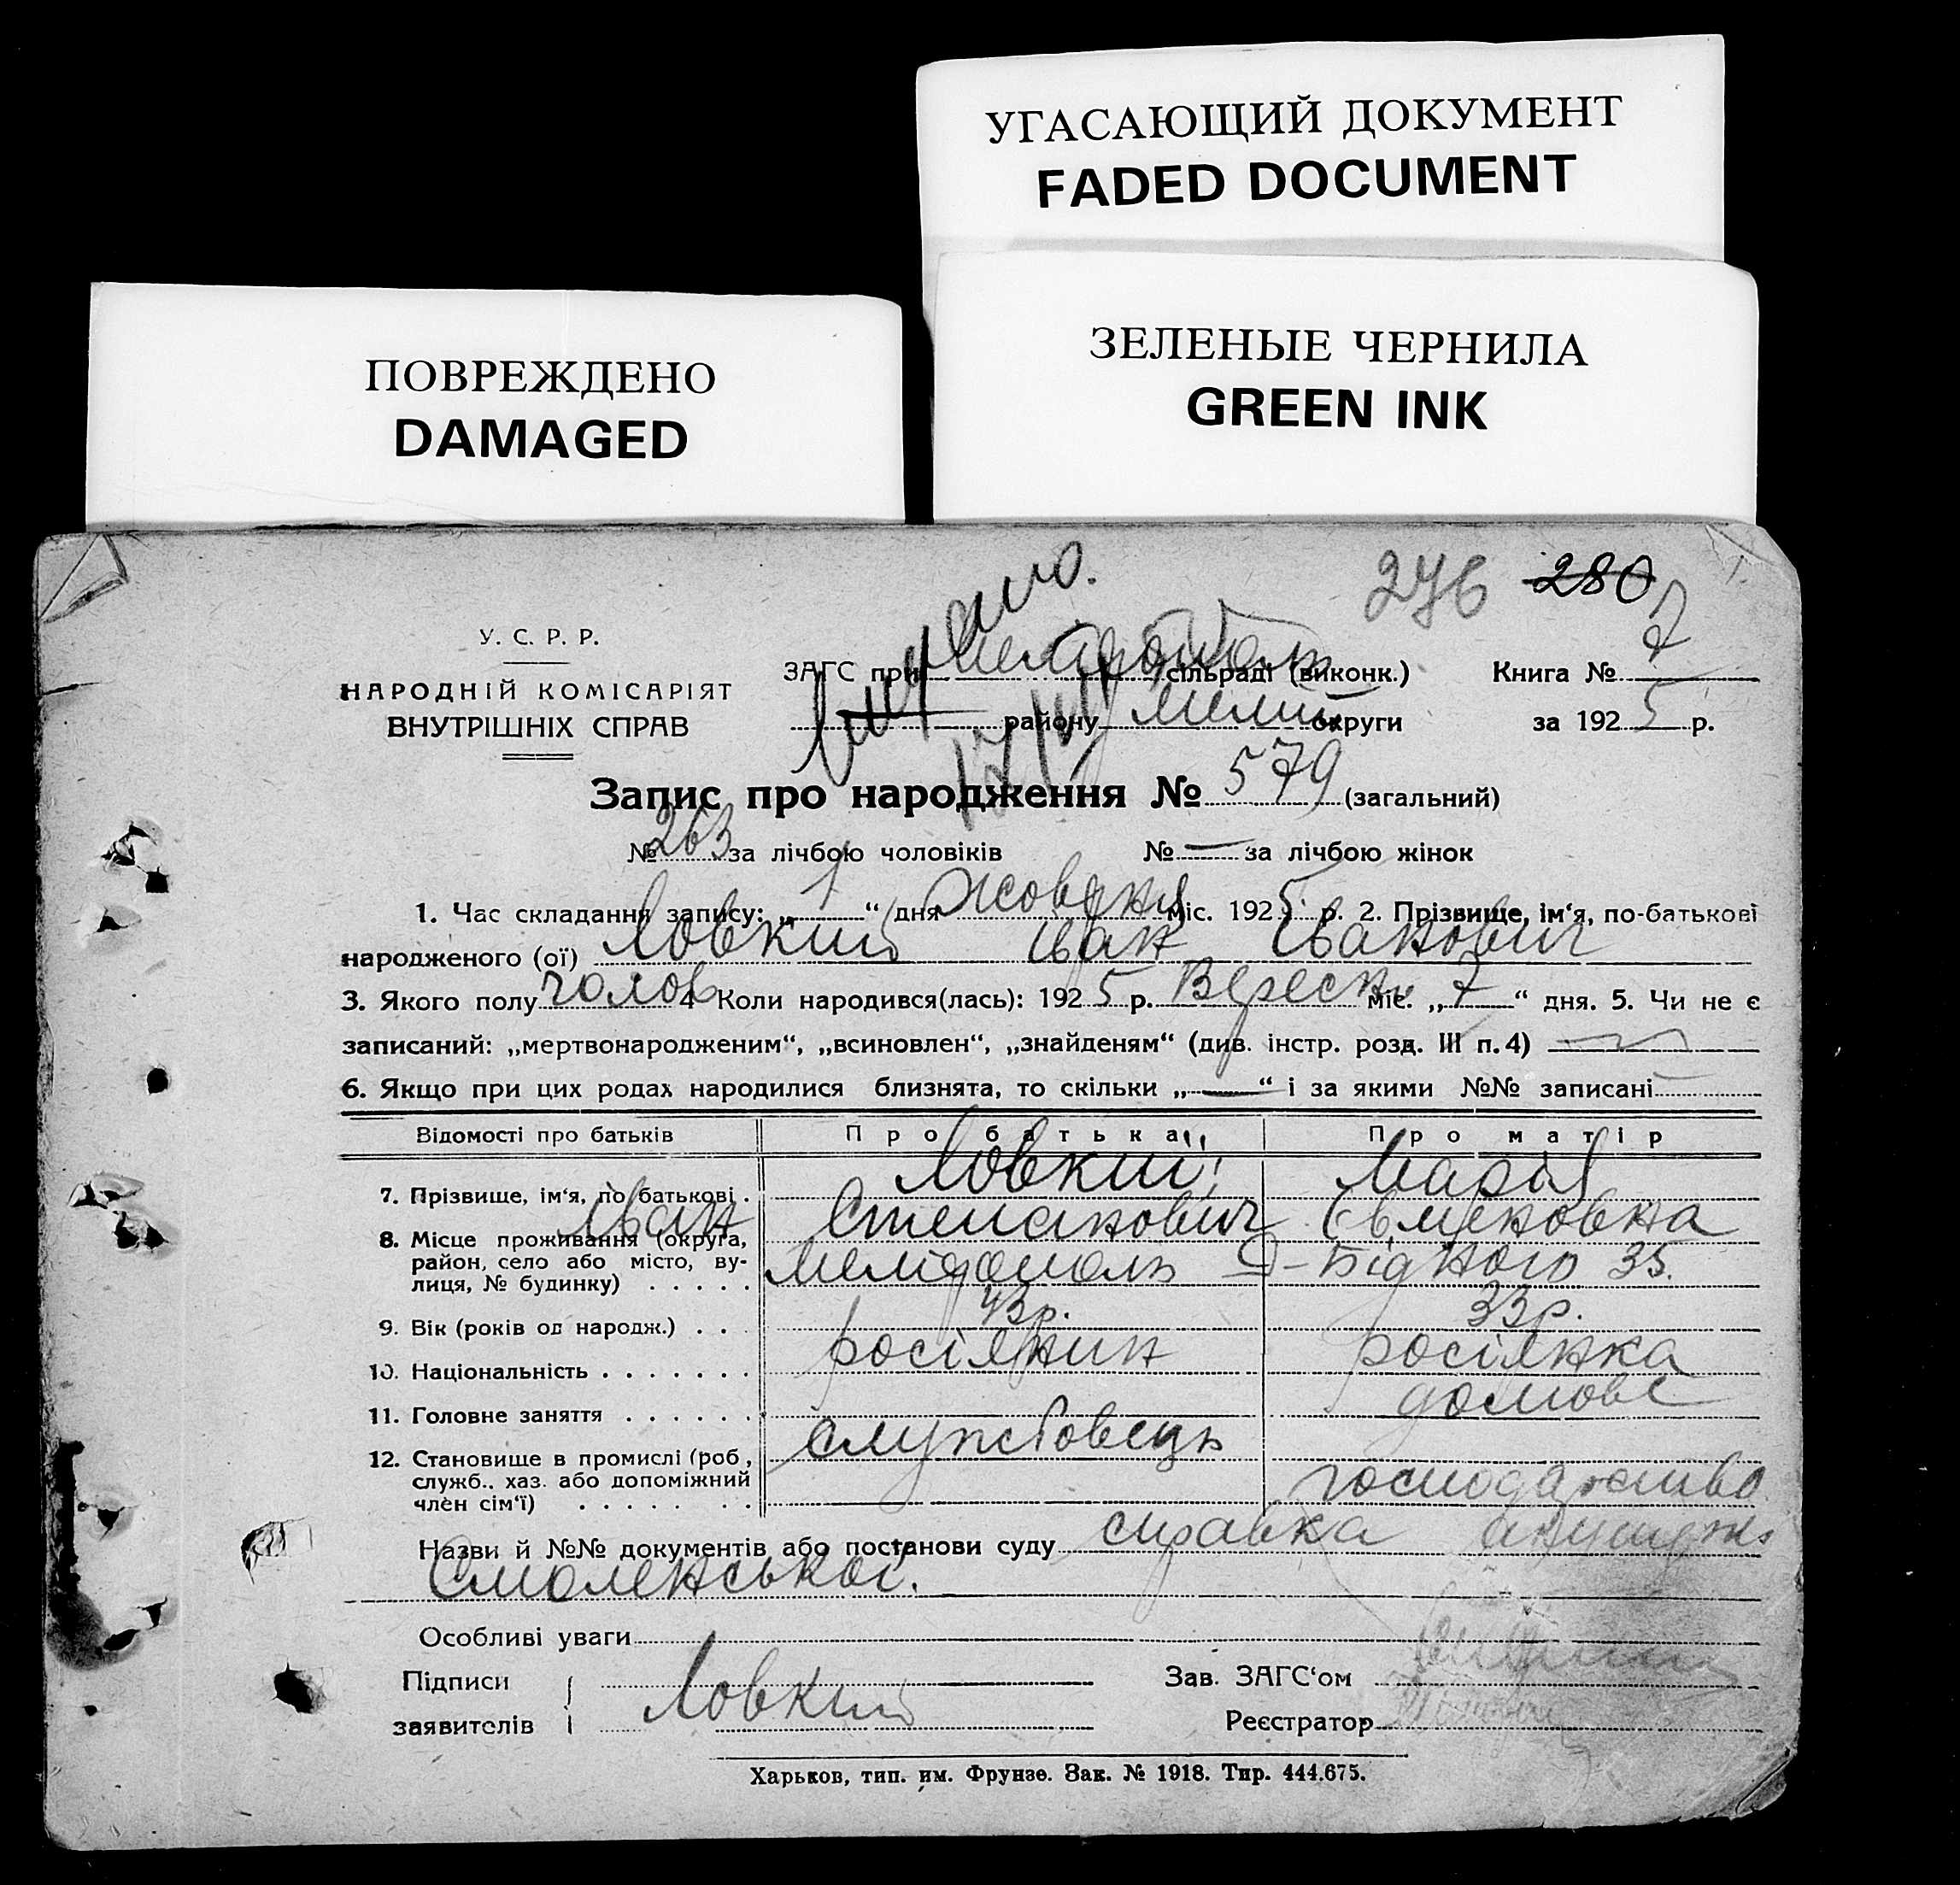 УГАСАЮЩИЙ ДОКУМЕНТ
FADED DOCUMENT
ЗЕЛЕНЫЕ ЧЕРНИЛА
GREEN INK
ПОВРЕЖДЕНО
DAMAGED
276 280
У. С. Р. Р.
НАРОДНІЙ КОМІСАРІЯТ
ВНУТРІШНІХ СПРАВ
ЗАГС при сільраді (виконк.) Книга № 7
району округи за 1925 р.
Запис про народження № 579 (загальний)
№ 263 за лічбою чоловіків № — за лічбою жінок
1. Час складання запису: „1“ дня Жовтня міс. 1925 р. 2. Прізвище, ім‘я, по-батькові
народженого (ої) Ловкий Іван Іванович
3. Якого полу чолов 4 Коли народився(лась): 1925 р. Вересня міс. „7“ дня. 5. Чи не є
записаний: „мертвонародженим“, „всиновлен“, „знайденям“ (див. інстр. розд. III п. 4)
6. Якщо при цих родах народилися близнята, то скільки „—“ і за якими №№ записані
Відомості про батьків Про батька Про матір
7. Прізвище, ім‘я, по батькові. Ловкий Марія
Іван Степанович
8. Місце проживання (округа, район, село або місто, вулиця, № будинку) Мелідополь Д-Бідного 35.
9. Вік (років од народж.) 43р. 33р.
10. Національність росіянин росіянка
11. Головне заняття домове
12. Становище в промислі (роб, служб., хаз. або допоміжний член сім‘ї) Службовець господарство
Назви й №№ документів або постанови суду справка акушерки
Смоленської.
Особливі уваги
Підписи Зав. ЗАГС‘ом
заявителів Ловкий Реєстратор
Харьков, тип. им. Фрунзе. Зак. № 1918. Тир. 444.675.